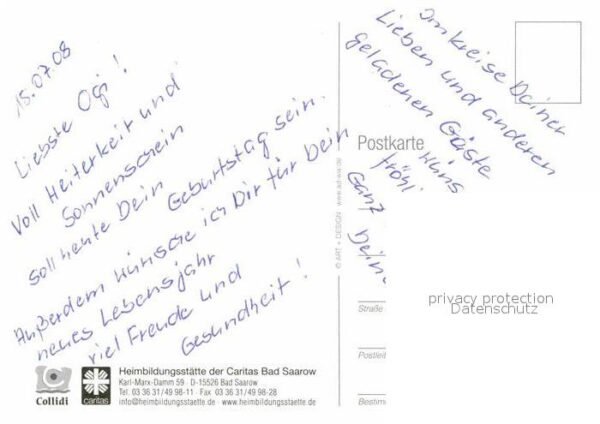 18.07.08
Liebste Ogi!
Voll Heiterkeit und
Sonnenschein
soll heute Dein Geburtstag sein.
Außerdem wünsche ich Dir für Dein
neues Lebensjahr
viel Freude und
Gesundheit!
Im kreise Deiner
Lieben und anderen
geladenen Gäste
Ganz
Postkarte
© ART + DESIGN www.ad-wa.de
Straße
Postleit
Bestim
privacy protection
Datenschutz
Collidi
caritas
Heimbildungsstätte der Caritas Bad Saarow
Karl-Marx-Damm 59 D-15526 Bad Saarow
Tel. 03 36 31/49 98-11 Fax 03 36 31/49 98-28
info@heimbildungsstaette.de www.heimbildungsstaette.de